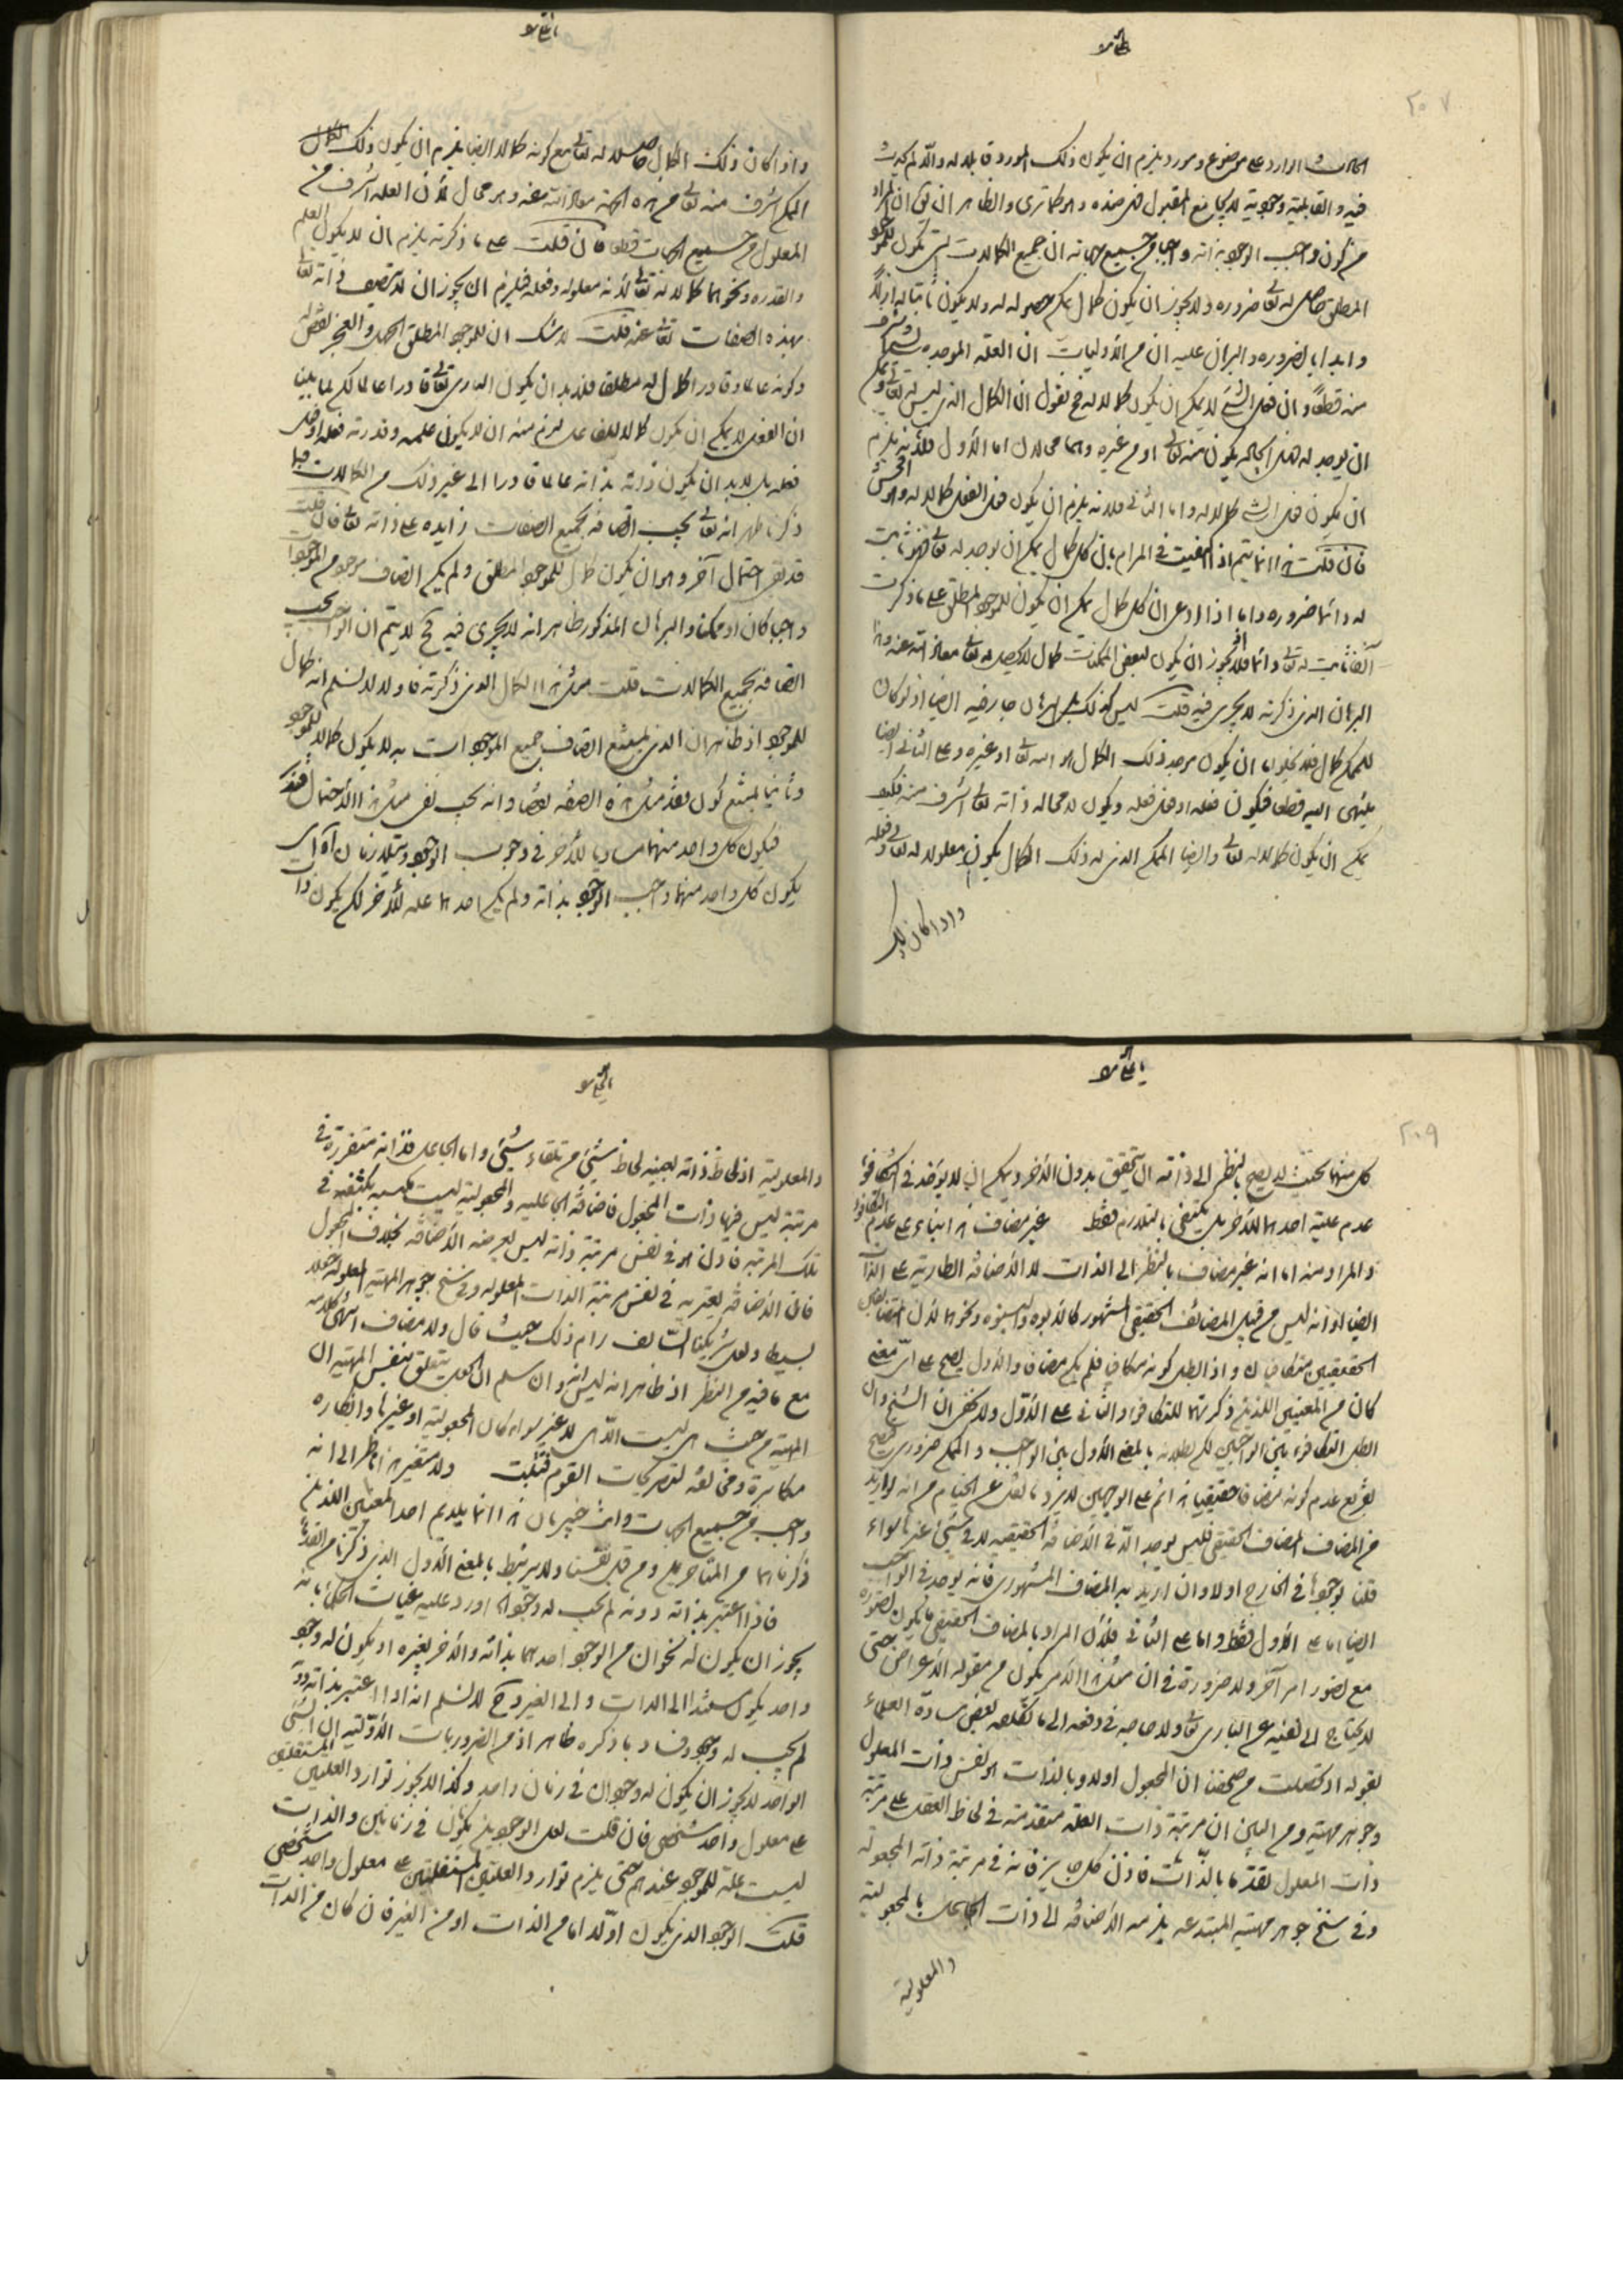 ٢٠٧
الوارد على موضوع ومورد يلزم ان يكون ذلك المورد قابلا له
فيه والقابلية وجودية لا يجامع المقبول وهو كما ترى والظاهر ان
من كون واجب الوجود بذاته واجبا من جميع جهاته ان جميع الكمالات التى يكون للموجود
المطلق حاصل له تعالى ضرورة ولا يجوز ان يكون كمال يمكن حصوله له ولا يكون ثابتا له ازلا
وابدا بالضرورة والبرهان عليه ان من الأوليات ان العلة الموجدة للشىء اشرف
منه قطعا وان فعل الشىء لا يمكن ان يكون كمالا له فح نقول ان الكمال الذى ليس له تعالى ويمكن
ان يوجد له يكون منه تعالى او من غيره وهما محالان اما الأول فلأنه يلزم
ان يكون فعل الشىء كمالا له واما الثانى فلانه يلزم ان يكون فعل الفعل كمالا له وهو افحش
فان قلت هذا انما يتم اذا اكتفيت فى المرام بان كل كمال يمكن ان يوجد له تعالى فهو ثابت
له دائما ضرورة واما اذا ادعى ان كل كمال يمكن ان يكون للموجود المطلق على ما ذكرت
آنفا ثابت له تعالى دائما فلا لجواز ان يكون لبعض الممكنات كمال لا يحصل له تعالى معاذ الله عنه وهذا
البرهان الذى ذكرته لا يجرى فيه قلت ليس كذلك بل البرهان جار فيه ايضا اذ لو كان
للممكن كمال فلا يخلو اما ان يكون موجد ذلك الكمال هو الله تعالى او غيره وعلى الثانى ايضا
ينتهى اليه قطعا فيكون فعله او فعل فعله ويكون لا محالة ذاته تعالى اشرف منه فكيف
يمكن ان يكون كمالا له تعالى وايضا الممكن الذى له ذلك الكمال يكون معلولا له تعالى وفعله
واذا كان ذلك
واذا كان ذلك الكمال حاصلا له تعالى مع كونه كمالا ايضا يلزم ان يكون ذلك
الممكن اشرف منه تعالى من هذه الجهة معاذ الله عنه وهو محال لأن العلة اشرف من
المعلول من جميع الجهات قطعا فان قلت على ما ذكرته يلزم ان لا يكون العلم
والقدرة ونحوهما كمالا له تعالى لأنه معلوله وفعله فيلزم ان يجوز ان لا يتصف ذاته تعالى
بهذه الصفات تعالى عنه قلت لا شك ان للموجود المطلق الجهل والعجز نقص له
وكونه عالما وقادرا كمال له مطلقا فلا بد ان يكون البارى تعالى قادرا عالما لكن لما بين
ان الفعل لا يمكن ان يكون كمالا للفاعل لزم منه ان لا يكون علمه وقدرته فعله او فعل
فعله بل لا بد ان يكون ذاته بذاته عالما قادرا الى غير ذلك من الكمالات فبما
ذكرنا ظهر انه تعالى يجب اتصافه بجميع الصفات زايدة على ذاته تعالى فان قلت
قد بقى احتمال آخر وهو ان يكون كمال للموجود المطلق ولم يمكن اتصاف موجود من الموجودات
واجبا كان او ممكنا والبرهان المذكور ظاهر انه لا يجرى فيه فح لا يتم ان الواجب يجب
اتصافه بجميع الكمالات قلت مثل هذا الكمال الذى ذكرته فاولا لا نسلم انه كمال
للموجود اذ ظاهر ان الذى يمتنع اتصاف جميع الموجودات به لا يكون كمالا للموجود
وثانيا يمتنع كون فقد مثل هذه الصفة نقصا وانه يجب نفى مثل هذا الاحتمال
فيكون كل واحد منهما مساويا للآخر فى وجوب الوجود ويتلازمان اه اى
يكون كل واحد منهما واجب الوجود بذاته ولم يكن احدهما علة للآخر لكن يكون ذات
٢٠٩
كل منهما بحيث لا يصح بالنظر الى ذاته ان يتحقق بدون الآخر ويمكن ان لا يؤخذ فى التكافؤ
عدم علية احدهما للآخر بل يكتفى بالتلازم فقط غير مضاف هذا بناء على عدم التكافؤ
والمراد منه اما انه غير مضاف بالنظر الى الذات لا الأضافة الطارية على الذات
ايضا او انه ليس من قبيل المضايف الحقيقى المشهور كالأبوة والبنوة ونحوهما لأن المتضايفين
الحقيقيين متكافيان واذا بطل كونه مكافيا فلم يكن مضافا والأول يصح على اى معنى
كان من المعنيين اللذين ذكرتهما للتكافؤ والثانى على الأول ولا يخفى ان الشيخ وان
ابطل التكافؤ بين الواجبين لكن بطلانه بالمعنى الأول بين الواجب والممكن ضرورى فيصح
تفريع عدم كونه مضافا حقيقيا هذا ثم على الوجهين لا يرد ما نقل عن الخيام من انه لو اريد
من المضاف المضاف الحقيقى فليس يوجد الا فى الأضافة الحقيقية لا فى شىء غيرها سواء
قلنا بوجودها فى الخارج او لا وان اريد به المضاف المشهورى فانه يوجد فى الواجب
ايضا اما على الأول فقط واما على الثانى فلأن المراد بالمضاف الحقيقى ما يكون تصوره
مع تصور امر آخر ولا ضرورة فى ان مثل هذا الأمر يكون من مقولة الأعراض حتى
لا يحتاج الى نفيه عن البارى تعالى ولا حاجة فى دفعه الى ما تكلفه بعض سادة العلماء
بقوله اذ تحصلت من صحفنا ان المجعول اولا وبالذات هو نفس ذات المعلول
وجوهر مهيته ومن البين ان مرتبة ذات العلة متقدمة فى لحاظ العقل على مرتبة
ذات المعلول تقدما بالذات فاذن كل جايز فانه فى مرتبة ذاته المجعولة
وفى سنخ جوهر مهيته المبتدعة يلزمه الأضافة الى ذات الجاعل بالمجعولية
والمعلولية
والمعلولية اذ لحاظ ذاته بعينه لحاظ شىء من تلقاء شىء واما الجاعل فذاته متقررة فى
مرتبة ليس فيها ذات المجعول فاضافة الجاعلية والمجعولية ليست
تلك المرتبة فاذن هو فى نفس مرتبة ذاته ليس يعرضه الأضافة بخلاف المجعول
فان الأضافة يعتريه فى نفس مرتبة الذات المعلولة وفى سنخ جوهر المهية المعلولة جعلا
بسيطا ولعل شريكنا السالف رام ذلك حيث قال ولا مضاف انتهى كلامه
مع ما فيه من النظر اذ ظاهر انه ليس وان سلم ان الجعل يتعلق بنفس المهية ان
المهية من حيث هى ليست الا هى لا غير سواء كان المجعولية او غيرها وانكاره
مكابرة ومخالفة لتصريحات القوم فتثبت ولا متغير هذا ناظر الى انه
واجب من جميع الجهات وانت خبير بان هذا انما يلايم احد المعنيين اللذين
ذكرناهما من المتأخرين ومن قبل نفسنا ولا يرتبط بالمعنى الأول الذى ذكرنا من القدماء
فاذا اعتبر بذاته دونه لم يجب له وجود اورد عليه غياث الحكماء بانه
يجوز ان يكون له نحوان من الوجود احدهما بذاته والآخر بغيره او يكون له وجود
واحد يكون مستندا الى الذات والى الغير وح لا نسلم انه اذا اعتبر بذاته دونه
لم يجب له وجود وفساد ما ذكره ظاهر اذ من الضروريات الأولية ان الشىء
الواحد لا يجوز ان يكون له وجودان فى زمان واحد وكذا لا يجوز توارد العلتين المستقلتين
على معلول واحد شخصى فان قلت لعل الوجودين يكونان فى زمانين والذات
ليست علة للوجود عندهم حتى يلزم توارد العلتين المستقلتين على معلول واحد شخصى
قلت الوجود الذى يكون اولا اما من الذات او من الغير فان كان من الذات